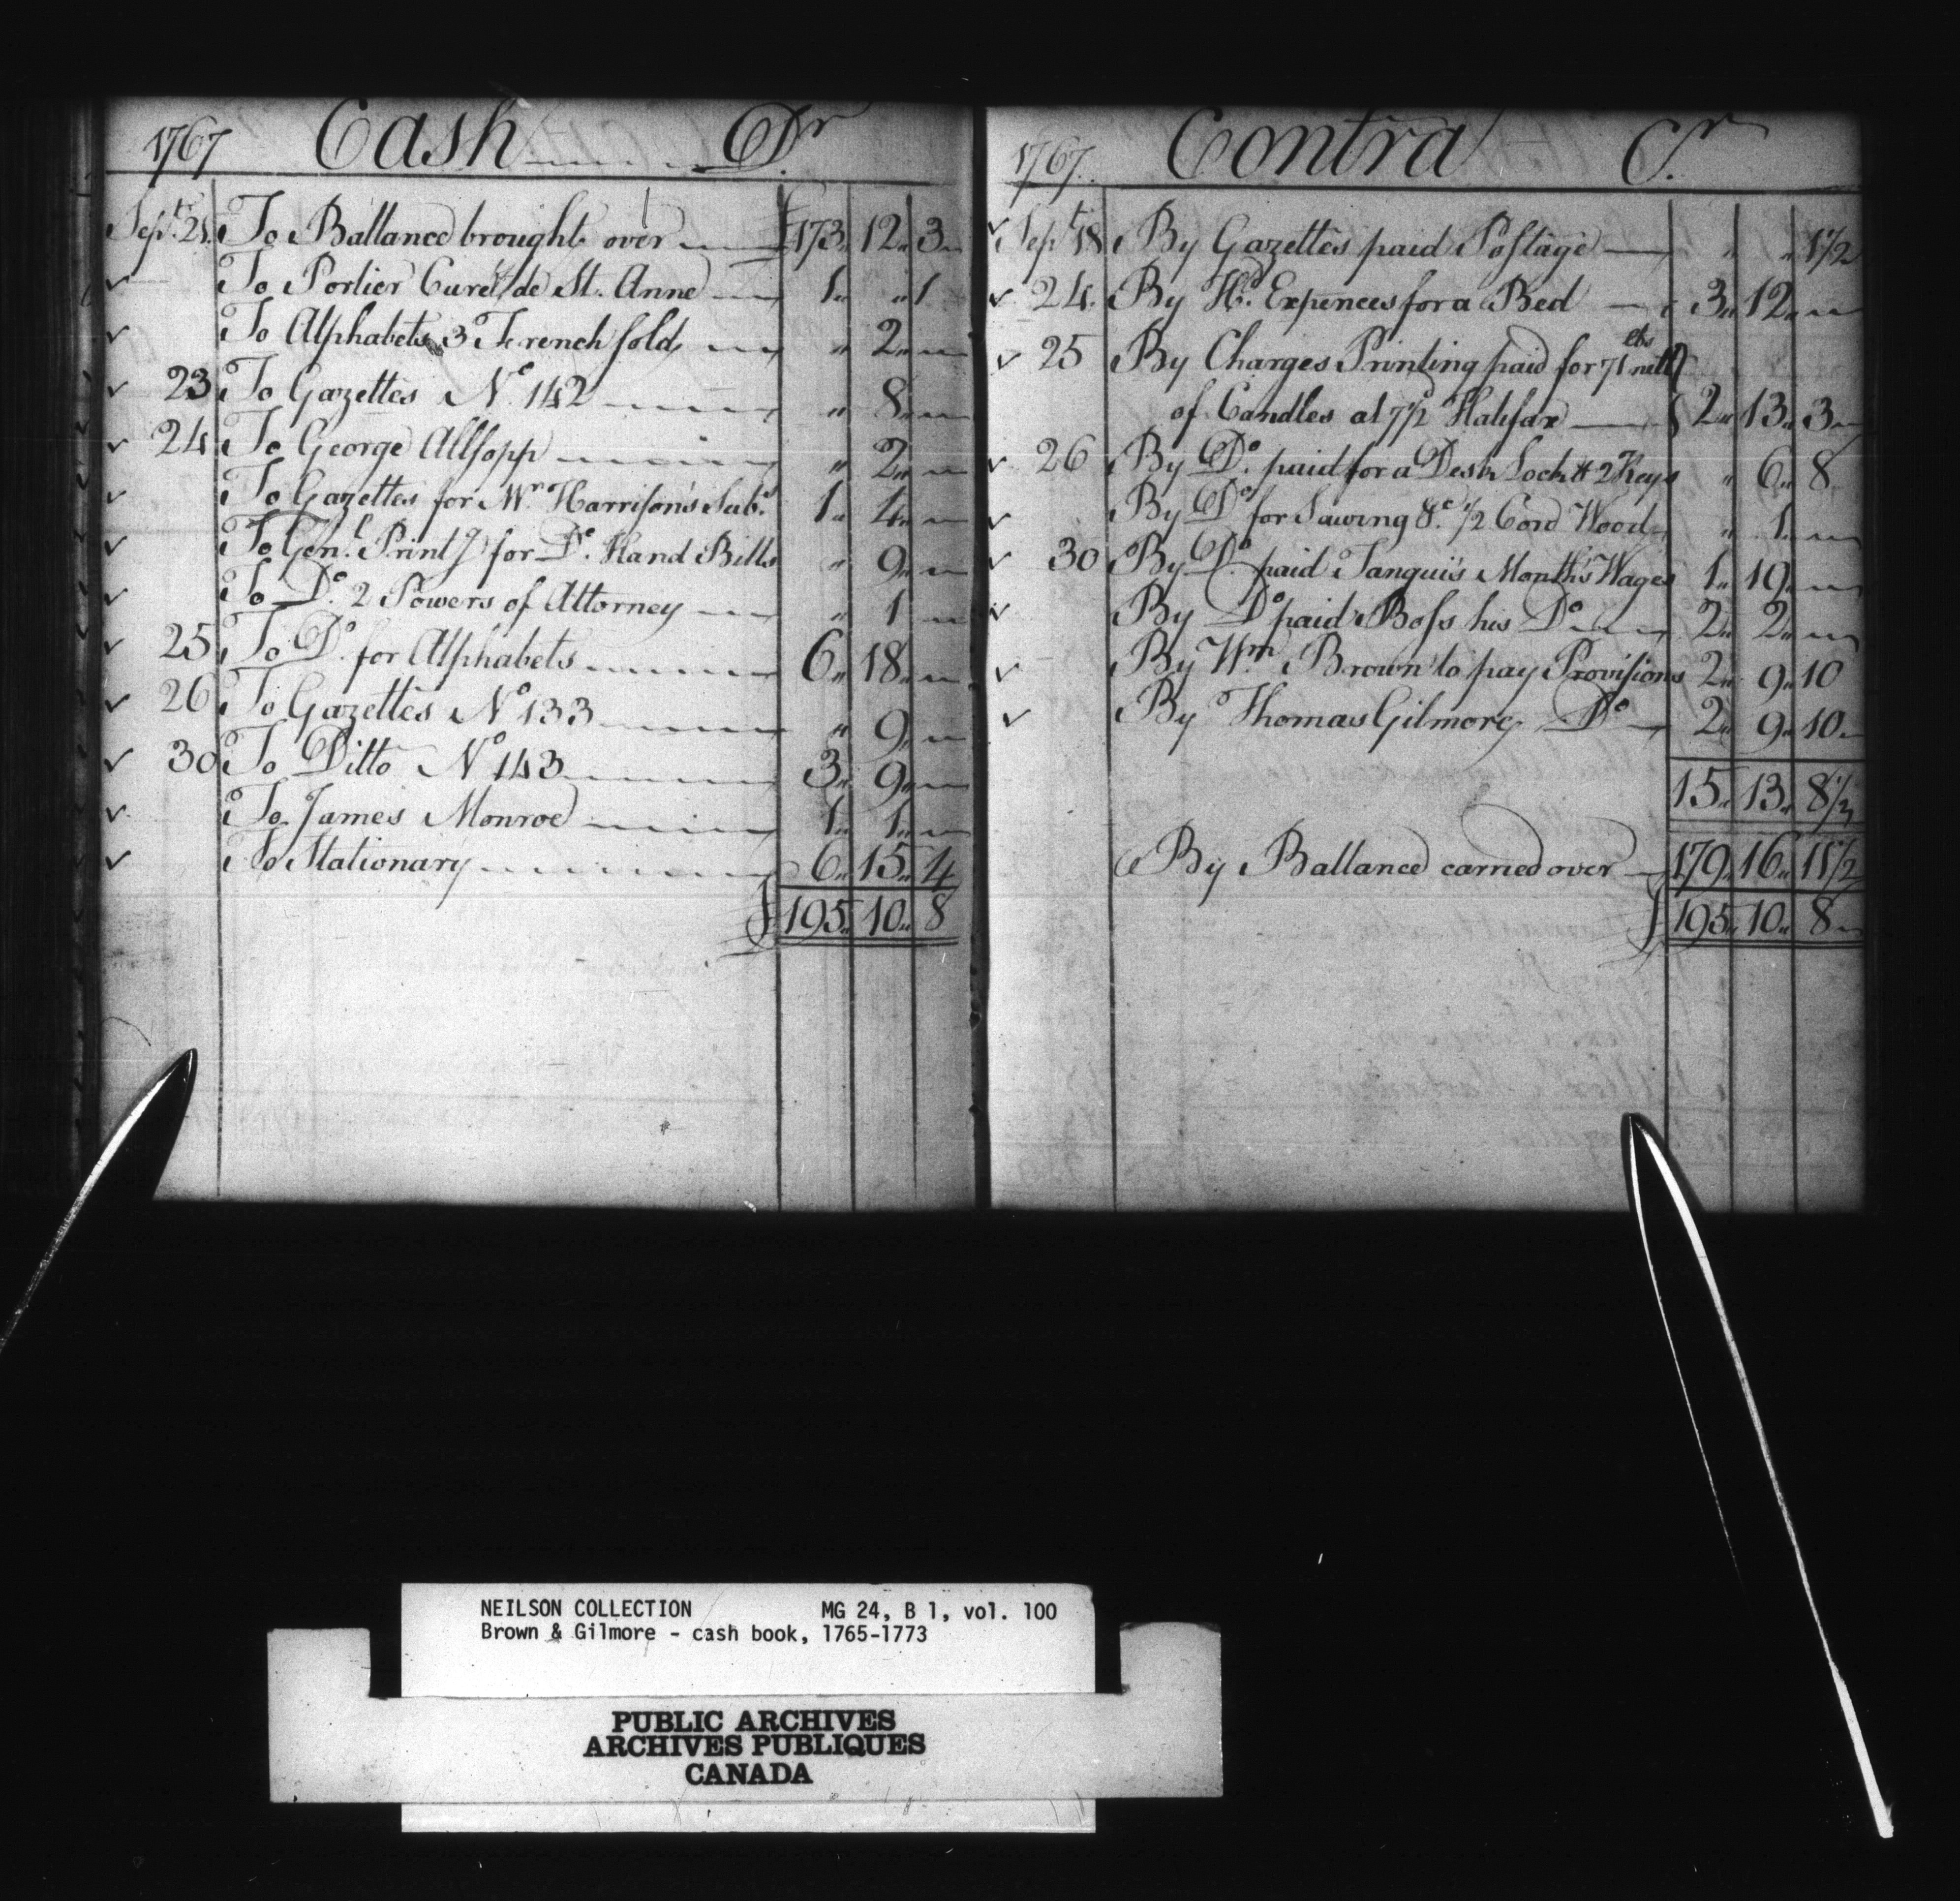 1767 Cash Dr
Sept. 21. To Ballance brought over £173 12 3
To Portier Curé de St. Anne 1 " 1
To Alphabets 3 French sold " 2
23 To Gazettes No. 142 " 8
24 To George Allsopp " 2
To Gazettes for Mr. Harrison's Subs. 1 4
To Genl. Printg for Do. Hand Bills " 9
To Do. 2 Powers of Attorney " 1
25 To Do. for Alphabets 6 18
26 To Gazettes No 133 " 9
30 To Ditto No 143 3 9
To James Monroe 1 1
To Stationary 6 15 4
£ 195 10 8
1767. Contra Cr.
Sept 18 By Gazettes paid Postage " " 1 1/2
24. By Hd. Expences for a Bed 3 12
25 By Charges Printing paid for 71 lbs nett
of Candles at 7 1/2 Halifax 2 13 3
26 By Do. paid for a Desk Lock & 2 Keys " 6 8
By Do for Sawing 1/2 Cord Wood " 1
30 By Do. paid Tanguis Month's Wages 1 19
By Do paid Boss his Do 2 2
By Wm Brown to pay Provisions 2 9 10
By Thomas Gilmore Do 2 9 10
15 13 8 1/2
By Ballance carried over 179 16 11 1/2
£ 195 10 8
NEILSON COLLECTION MG 24, B 1, vol. 100
Brown & Gilmore - cash book, 1765-1773
PUBLIC ARCHIVES
ARCHIVES PUBLIQUES
CANADA